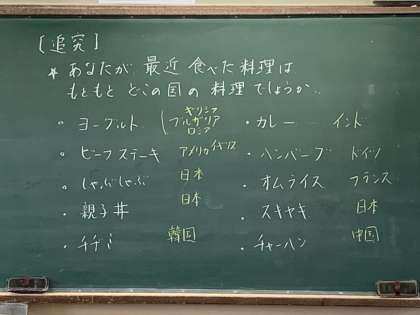 [追究]
* あなたが 最近 食べた料理は
もともと どこの国の 料理でしょうか。
・ヨーグルト (ギリシア
ブルガリア
ロシア
・カレー インド
・ビーフステーキ アメリカ イギリス
・ハンバーグ ドイツ
・しゃぶしゃぶ 日本
・オムライス フランス
・親子丼 日本
・スキヤキ 日本
・チヂミ 韓国
・チャーハン 中国